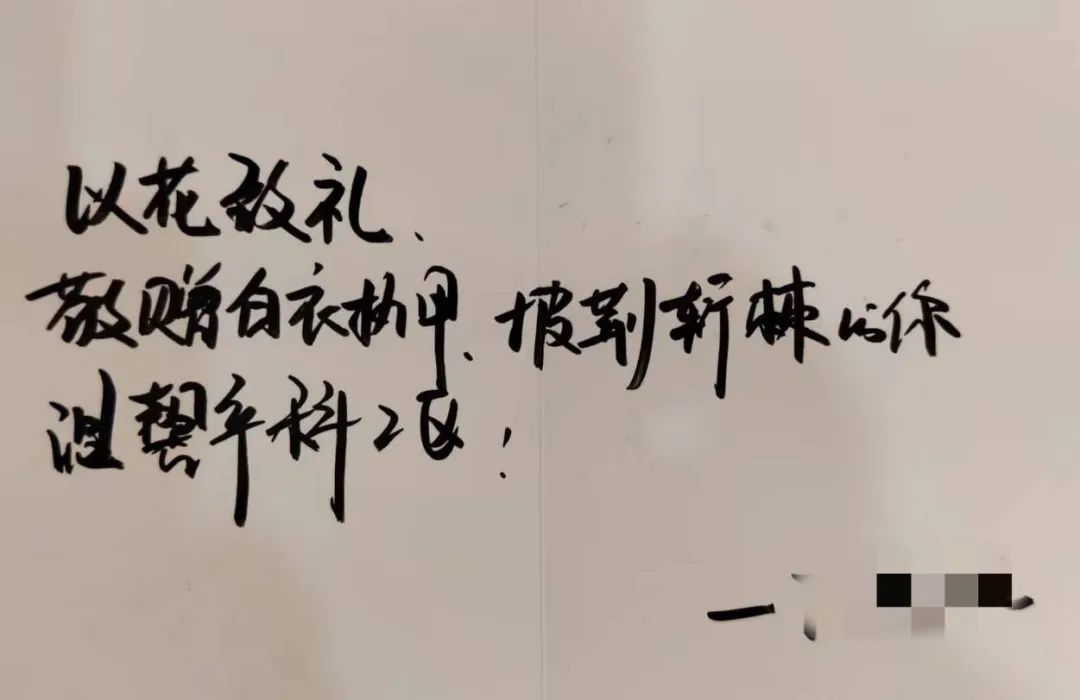 以花致礼、
敬赠白衣执甲、披荆斩棘的你
温馨科2区!
—